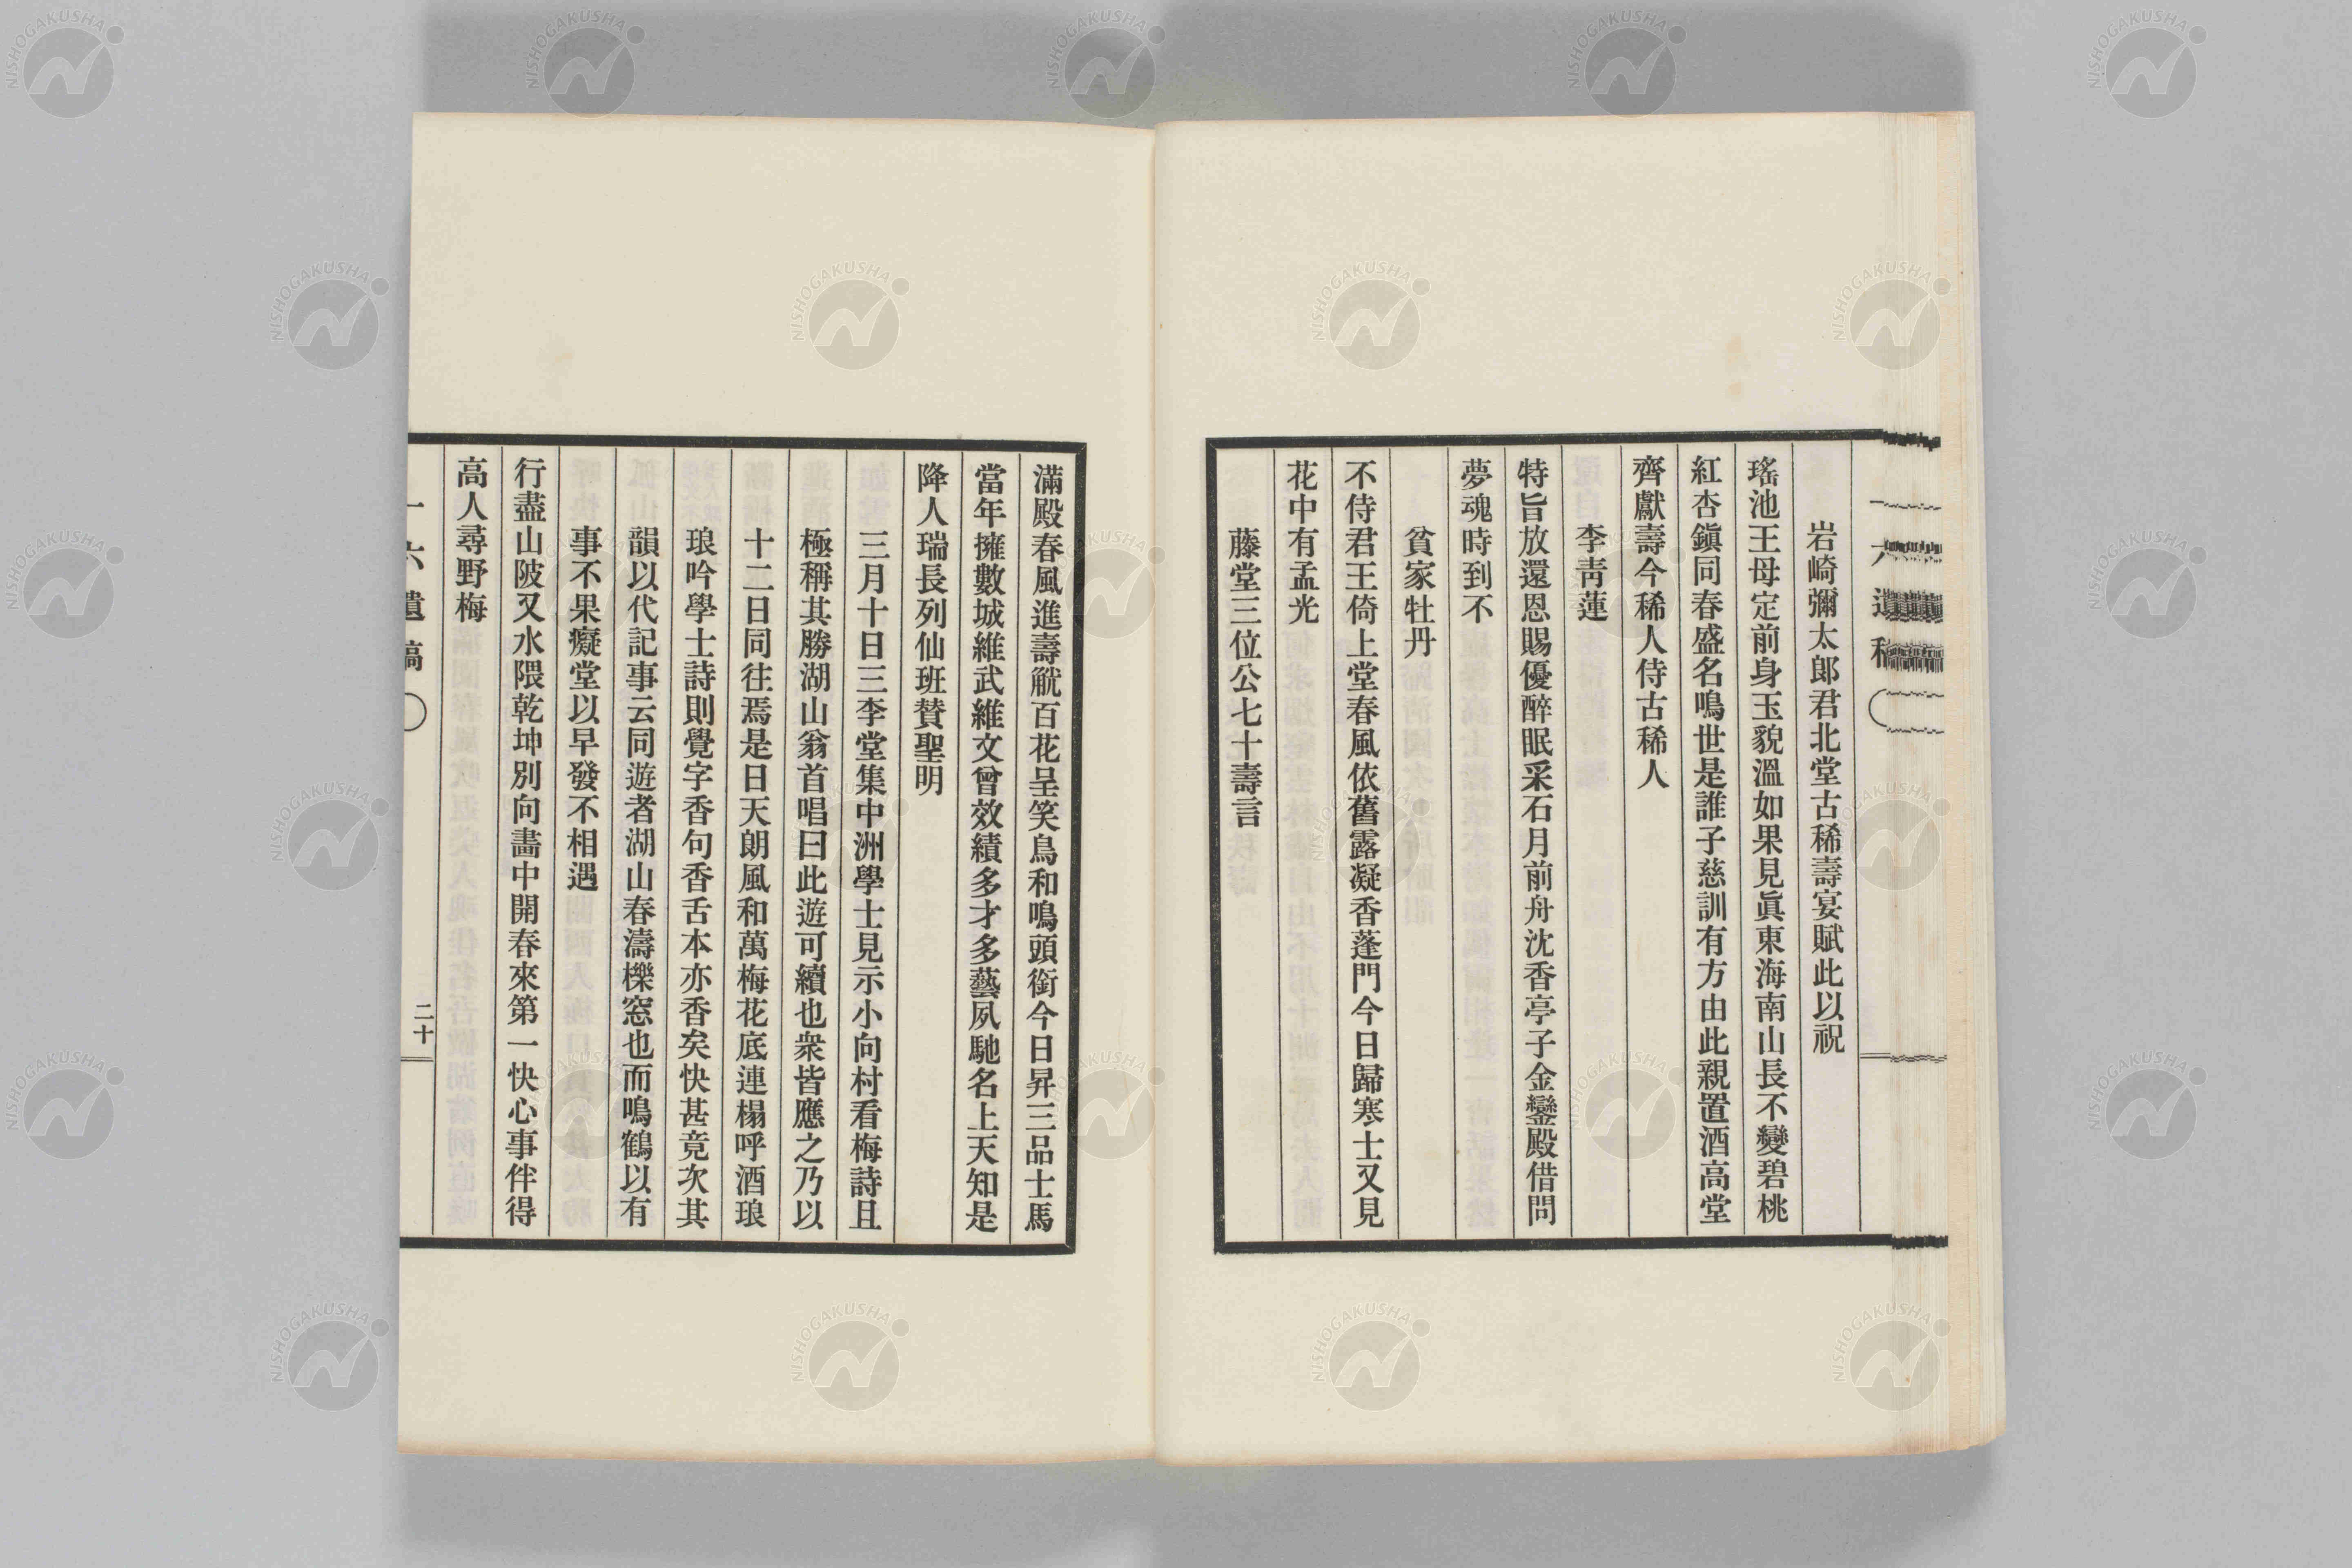 岩崎彌太郎君北堂古稀壽宴賦此以祝
瑤池王母定前身玉貌溫如果見眞東海南山長不變碧桃
紅杏鎭同春盛名鳴世是誰子慈訓有方由此親置酒高堂
齊獻壽今稀人侍古稀人
李靑蓮
特旨放還恩賜優醉眠采石月前舟沈香亭子金鑾殿借問
夢魂時到不
貧家牡丹
不侍君王倚上堂春風依舊露凝香蓬門今日歸寒士又見
花中有孟光
藤堂三位公七十壽言
滿殿春風進壽觥百花呈笑鳥和鳴頭銜今日昇三品士馬
當年擁數城維武維文曾效績多才多藝夙馳名上天知是
降人瑞長列仙班賛聖明
三月十日三李堂集中洲學士見示小向村看梅詩且
極稱其勝湖山翁首唱曰此遊可續也衆皆應之乃以
十二日同往焉是日天朗風和萬梅花底連榻呼酒琅
琅吟學士詩則覺字香句香舌本亦香矣快甚竞次其
韻以代記事云同遊者湖山春濤櫟窓也而鳴鶴以有
事不果癡堂以早發不相遇
行盡山陂又水隈乾坤別向畵中開春來第一快心事伴得
高人尋野梅
一六遺稿
二十
一六遺稿
NISHOGAKUSHA